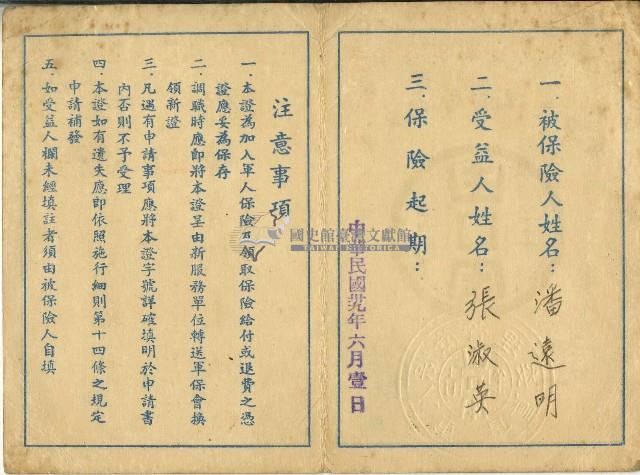 一.被保險人姓名：潘遠明
二.受益人姓名：張淑英
三.保險起期：
中華民國卅九年六月壹日
注意事項
一.本證為加入軍人保險及領取保險給付或退費之憑
證應妥為保存
二.調職時應即將本證呈由新服務單位轉送軍保會換
領新證
三.凡遇有申請事項應將本證字號詳確填明於申請書
內否則不予受理
四.本證如有遺失應即依照施行細則第十四條之規定
申請補發
五.如受益人欄未經填註者須由被保險人自填
國史館臺灣文獻館
TAIWAN HISTORICA